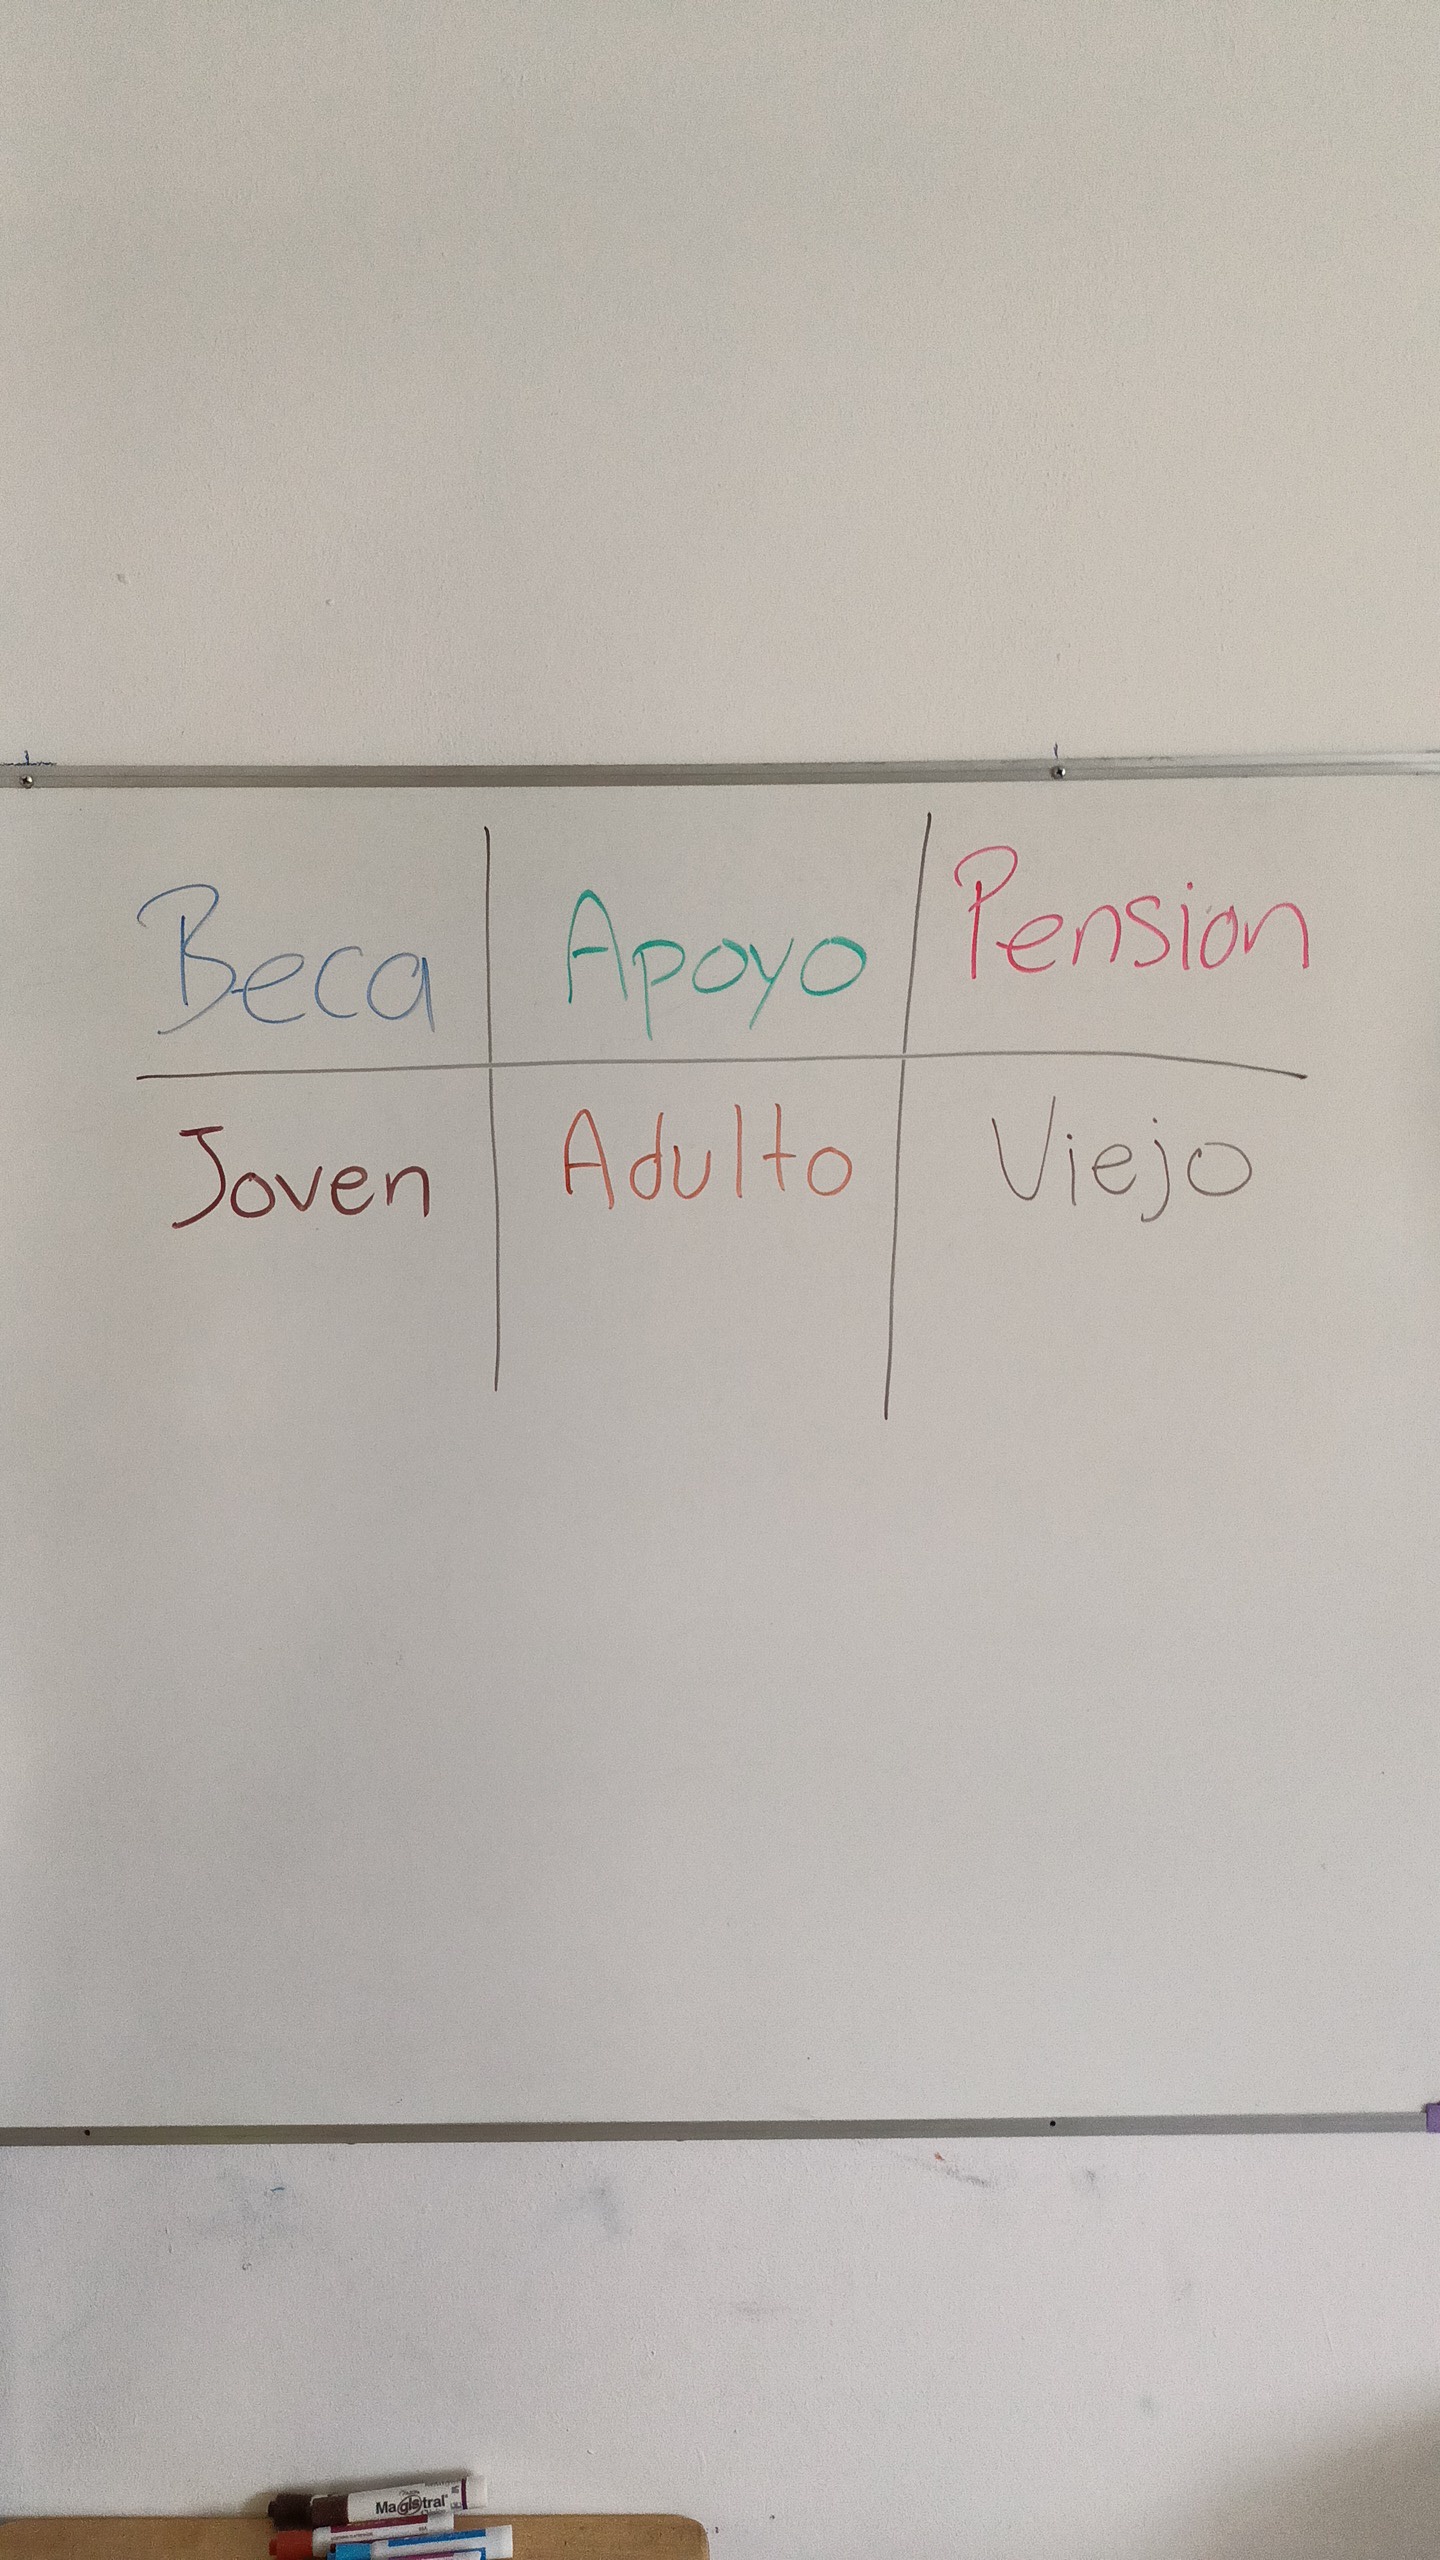 Beca Apoyo Pension
Joven Adulto Viejo
Magistral